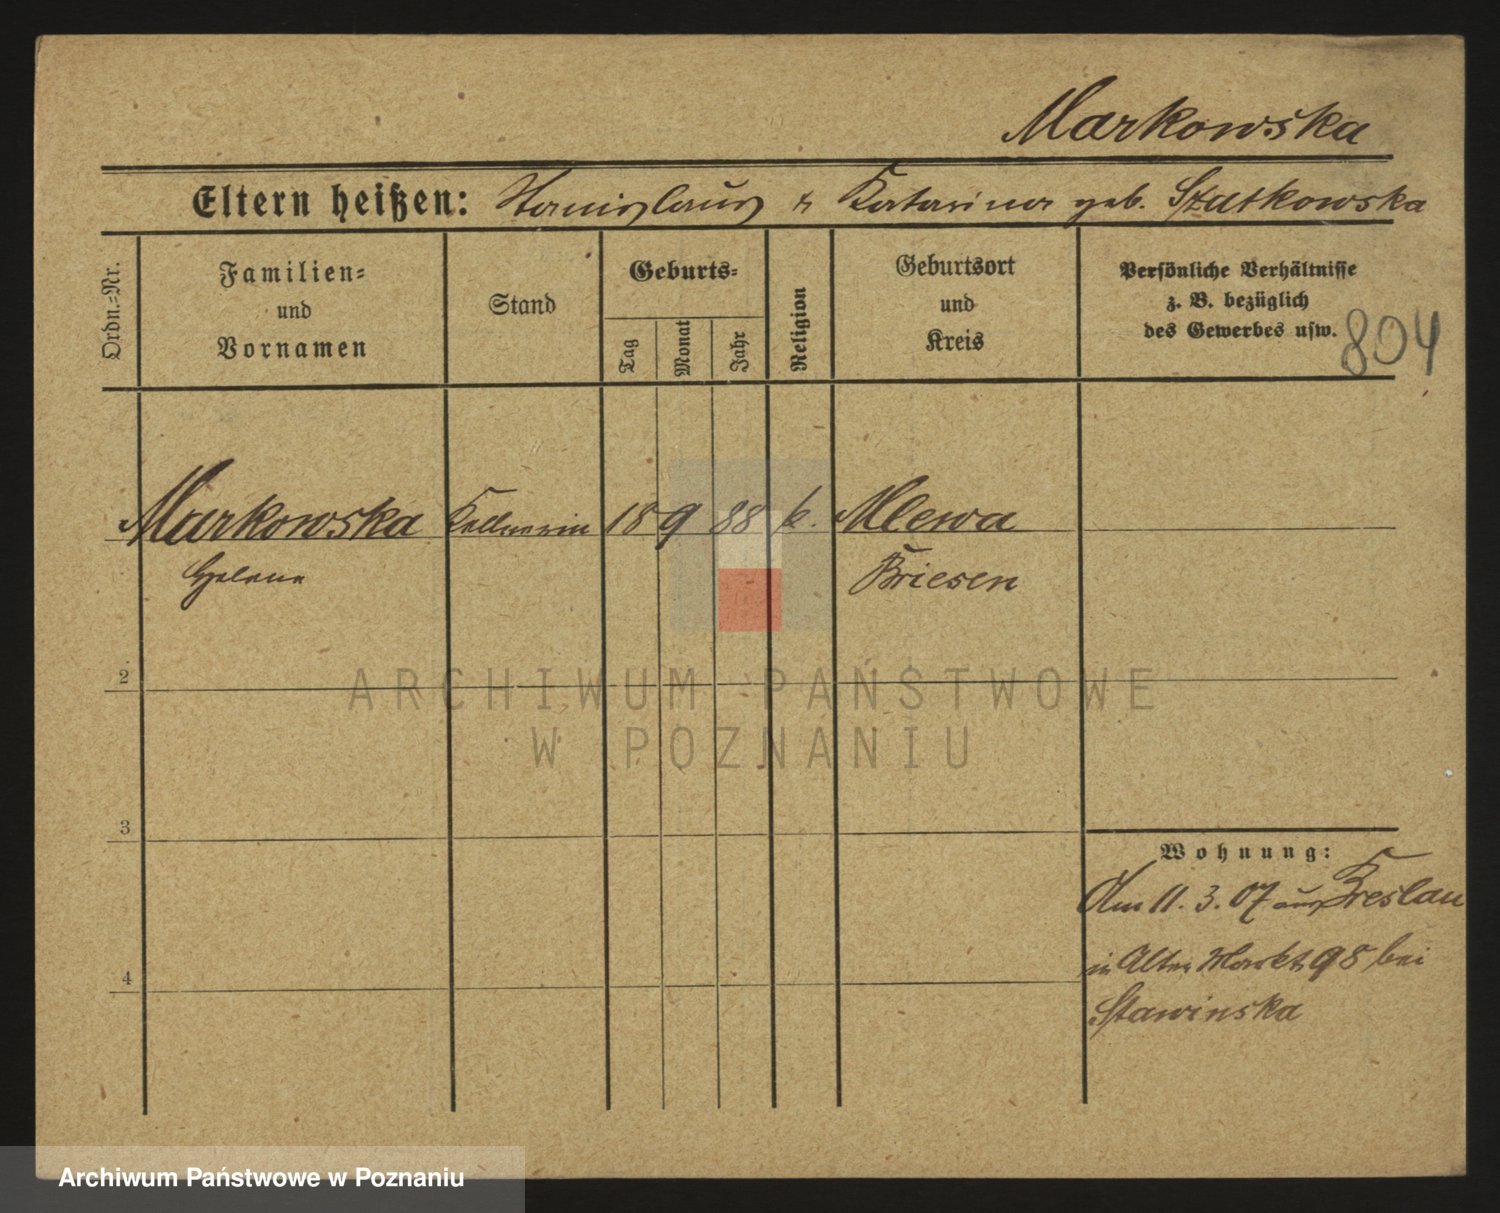 Markowska
Eltern heißen: Stanislaus & Katarina geb. Szatkowska
Ordn.=Nr.
Familien=
und
Vornamen
Stand
Geburts=
Tag
Monat
Jahr
Religion
Geburtsort
und
Kreis
Persönliche Verhältnisse
z. B. bezüglich
des Gewerbes usw.
804
Markowska Kellnerin 18 9 88 k. Mlewa
Helene Briesen
2
3
4
Wohnung:
Am 11. 3. 07 aus Breslau
in Alter Markt 98 bei
Stawinska
ARCHIWUM PAŃSTWOWE
W POZNANIU
Archiwum Państwowe w Poznaniu